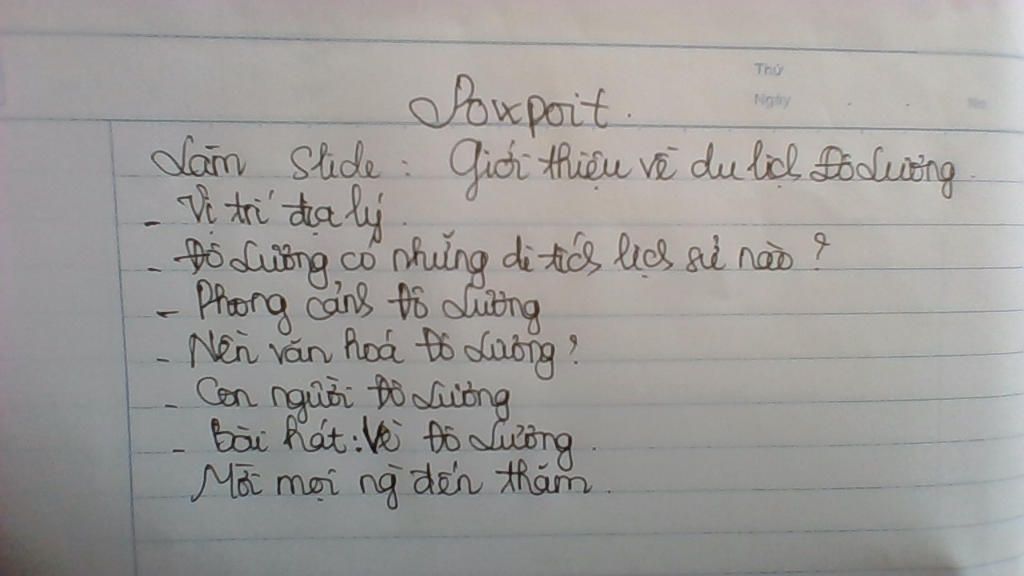 Thứ
Ngày
No
Pouxpoit.
Làm Slide: Giới thiệu về du lịch Đô Lương.
- Vị trí địa lý.
- Đô Lương có những di tích lịch sử nào?
- Phong cảnh Đô Lương
- Nền văn hoá Đô Lương?
- Con người Đô Lương
- Bài hát: Về Đô Lương.
Mời mọi ng` đến thăm.